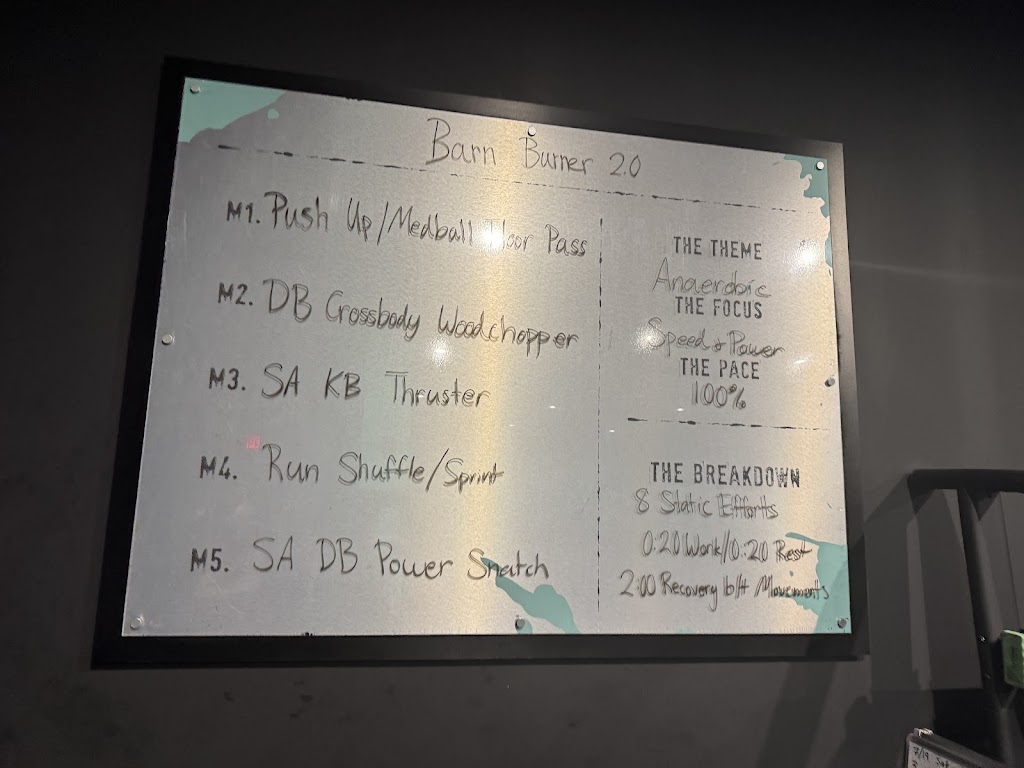 Barn Burner 2.0
M1. Push Up/Medball Floor Pass
M2. DB Crossbody Woodchopper
M3. SA KB Thruster
M4. Run Shuffle/Sprint
M5. SA DB Power Snatch
THE THEME
Anaerobic
THE FOCUS
Speed & Power
THE PACE
100%
THE BREAKDOWN
8 Static Efforts
0:20 Work/0:20 Rest
2:00 Recovery b/t Movements
7/19 Sat